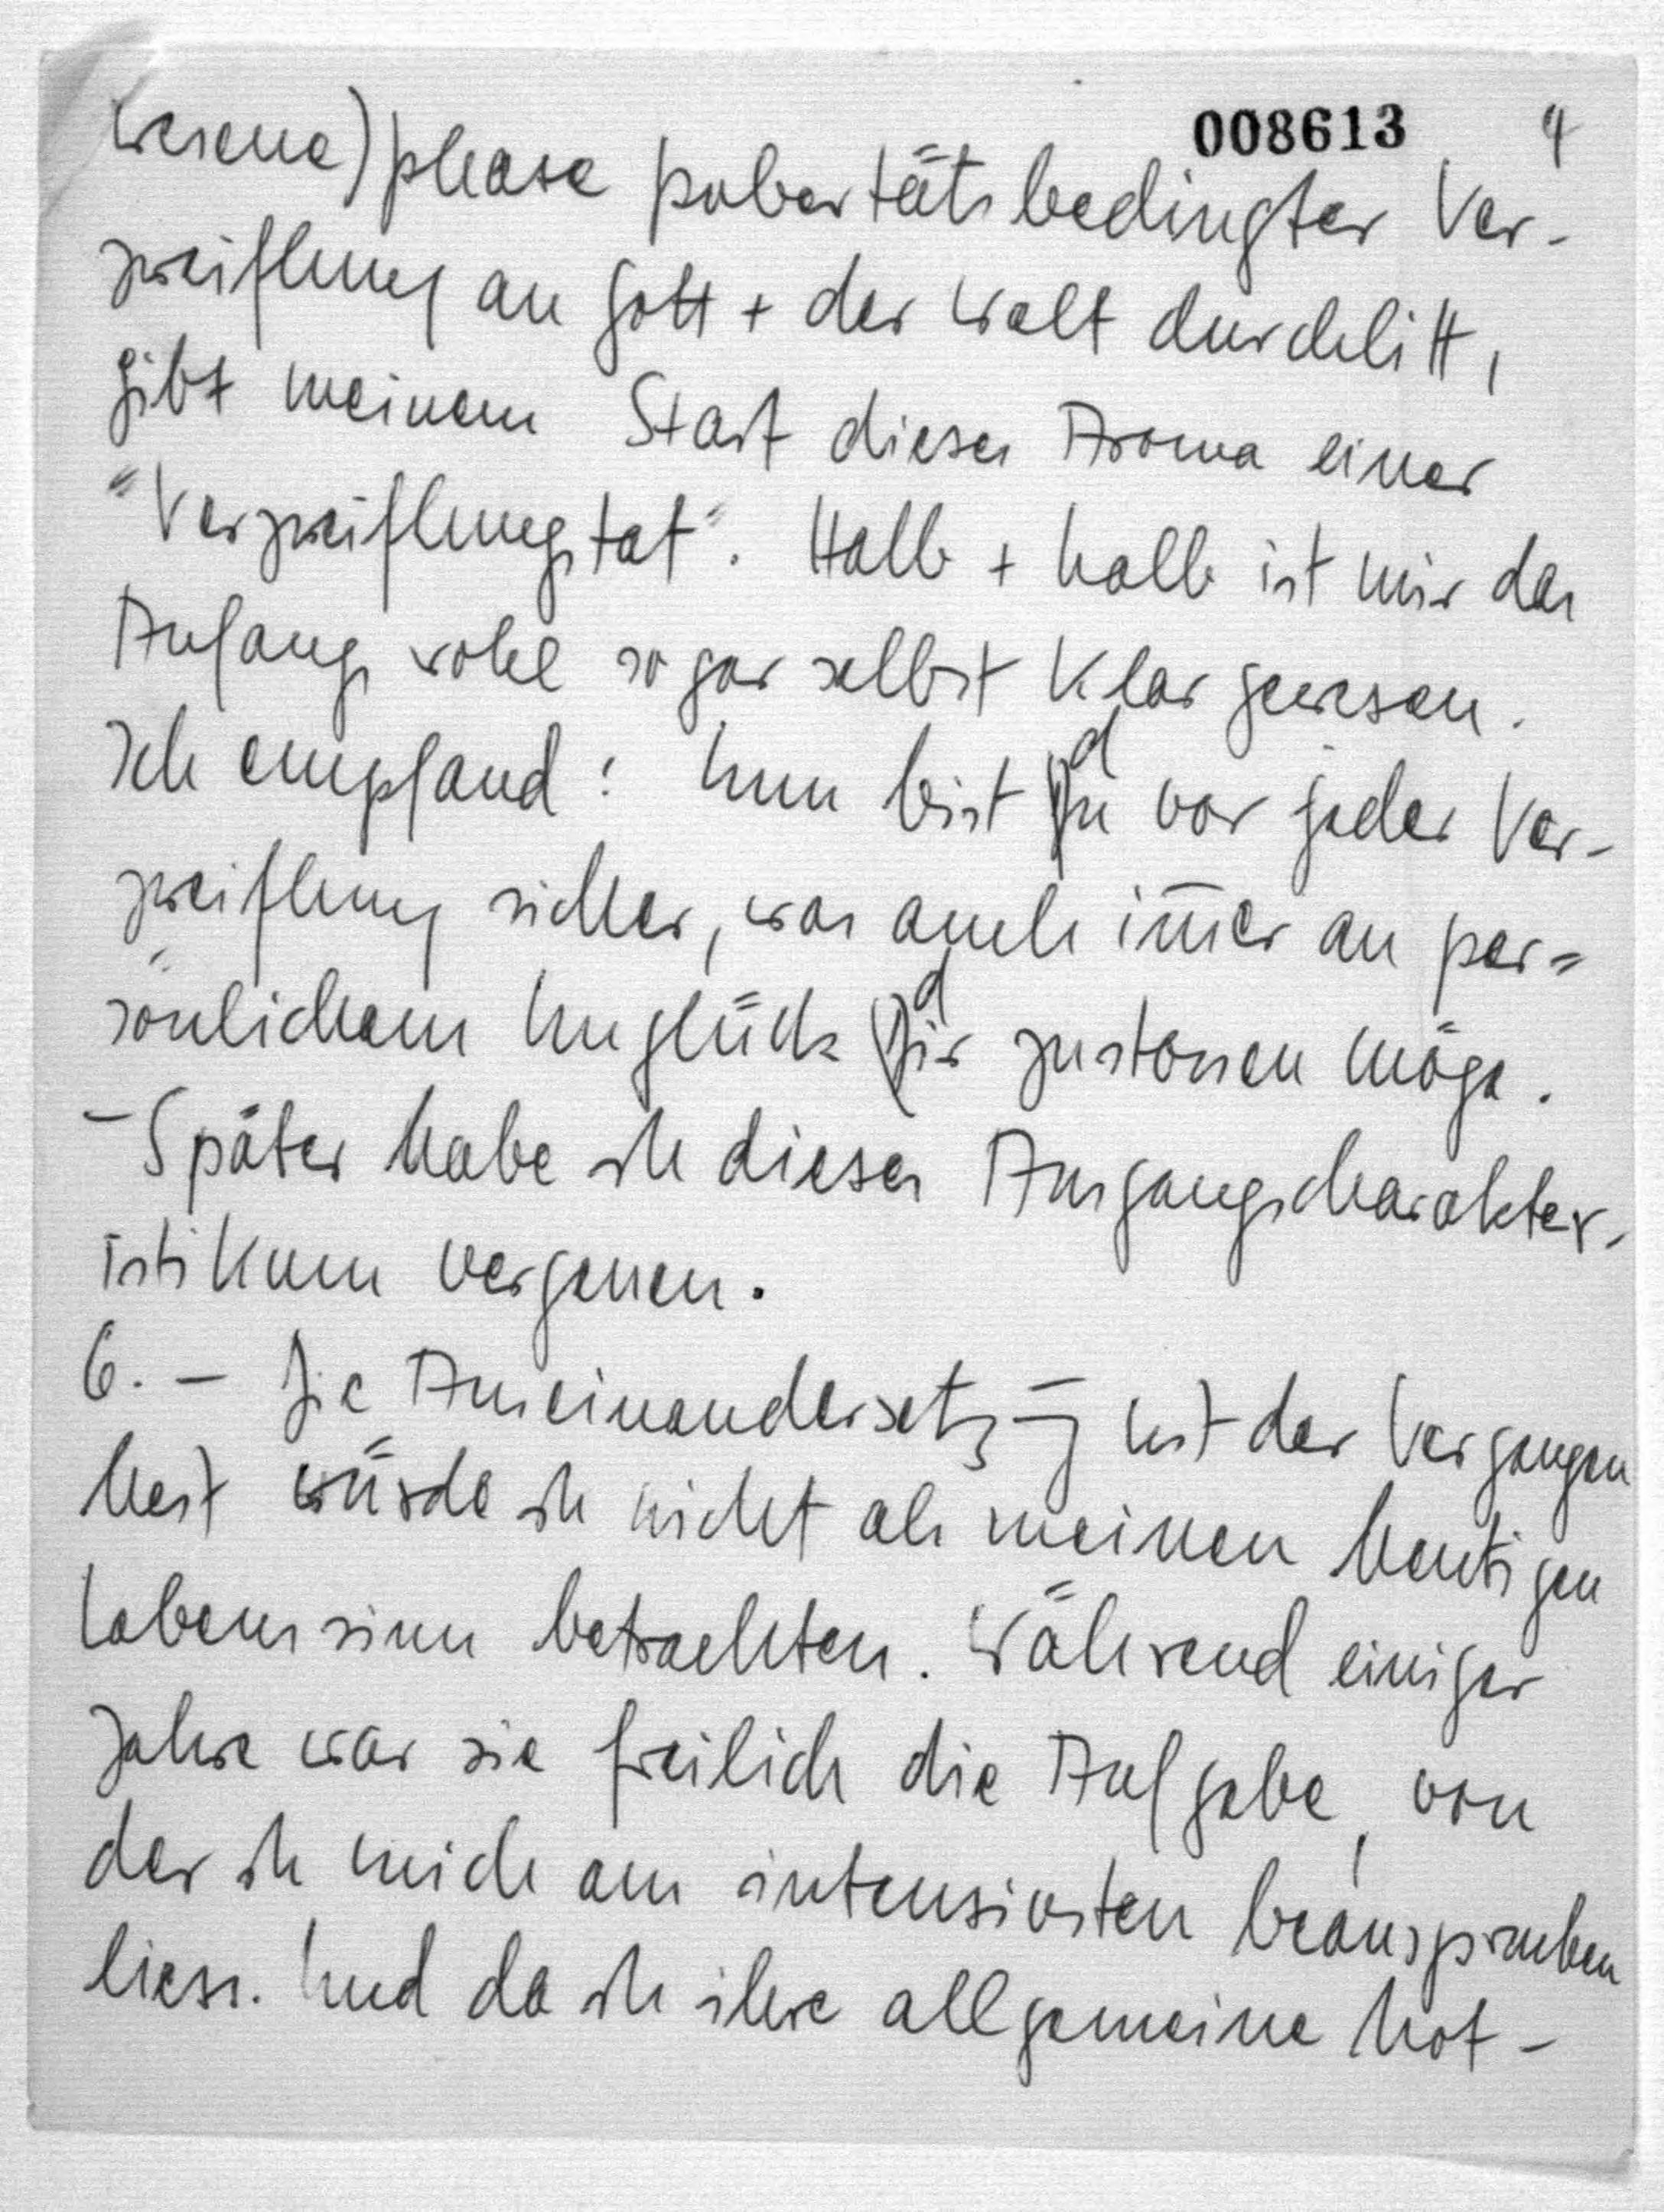 008613 4
wesene) phase pubertätsbedingter Ver-
zweiflung an Gott + der Welt durchlitt,
gibt meinem Start dieses Aroma einer
"Verzweiflungstat". Halb + halb ist mir das
Anfangs wohl sogar selbst klar gewesen.
Ich empfand: nun bist du vor jeder Ver-
zweiflung sicher, was auch im̄er an per=
sönlichem Unglück dir zustossen möge.
– Später habe ich dieses Ausgangscharakter-
istikum vergessen.
6. – Die Auseinandersetzg mit der Vergangen
heit würde ich nicht als meinen heutigen
Lebenssinn betrachten. Während einiger
Jahre war sie freilich die Aufgabe, von
der ich mich am intensivsten beanspruchen
liess. Und da ich ihre allgemeine Not-